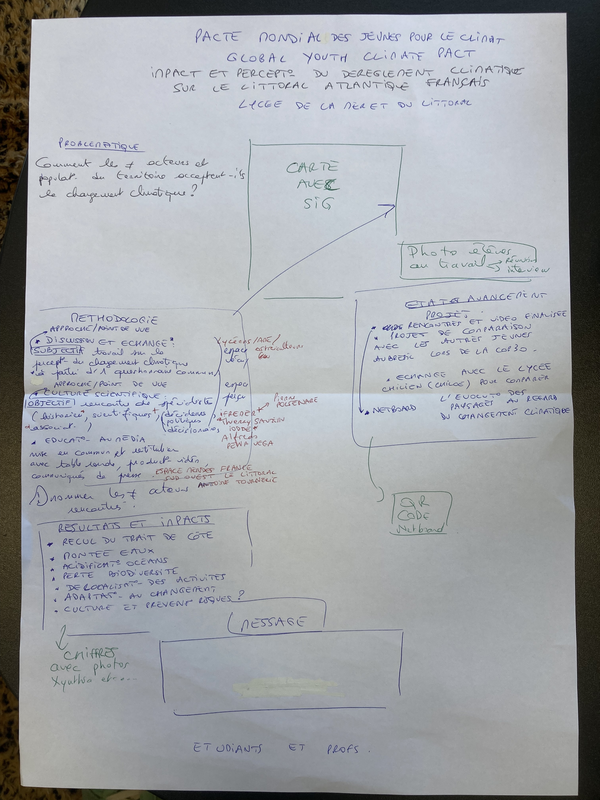 PACTE MONDIAL DES JEUNES POUR LE CLIMAT
GLOBAL YOUTH CLIMATE PACT
IMPACT ET PERCEPT° DU DEREGLEMENT CLIMATIQUE
SUR LE LITTORAL ATLANTIQUE FRANÇAIS
LYCEE DE LA MER ET DU LITTORAL
PROBLEMATIQUE
Comment les ≠ acteurs et
populat° du territoire acceptent-ils
le changement climatique ?
CARTE
AVEC
SIG
Photo élèves
au travail → Réunion
interview
METHODOLOGIE
APPROCHE/POINT DE VUE
• DISCUSSION ET ECHANGE :
SUBJECTIF travail sur la
percept° du changement climatique
à partir d'1 questionnaire commun
APPROCHE/POINT DE VUE
• CULTURE SCIENTIFIQUE :
OBJECTIF rencontres des spécialistes
(historiens, scientifiques, décideurs
publiques
associat°,
• EDUCAT° AU MEDIA
mise en commun et restitution
avec table ronde, product° vidéo
communiqués de presse
ESPACE MENDES FRANCE
SUD OUEST LE LITTORAL
ANTOINE TOURNERIE
Dénommer les ≠ acteurs
rencontrés
Lycéens
espace
espace
perçu
FREDER
Thierry SAUZEAU
IODDE
Alfred
ETAT D'AVANCEMENT
PROJET :
• RENCONTRES ET VIDEO FINALISEE
• PROJET DE COMPARAISON
AVEC LES AUTRES JEUNES
AU BRESIL LORS DE LA COP30.
• ECHANGE AVEC LE LYCEE
CHILIEN (CHILOE) POUR COMPARER
L'EVOLUT° DES
PAYSAGES AU REGARD
DU CHANGEMENT CLIMATIQUE
• NETBOARD
QR
CODE
Netboard
RESULTATS ET IMPACTS
• RECUL DU TRAIT DE COTE
• MONTEE EAUX
• ACIDIFICAT° OCEANS
• PERTE BIODIVERSITE
• DELOCALISAT° DES ACTIVITES
• ADAPTAT° AU CHANGEMENT
• CULTURE ET PREVENT° RISQUES ?
CHIFFRES
avec photos
Xynthia etc...
MESSAGE
ETUDIANTS ET PROFS.